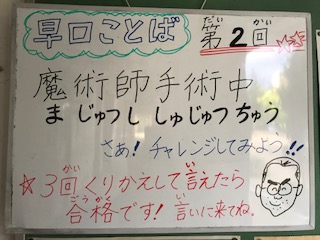 早口ことば
第2回
魔術師手術中
まじゅつし しゅじゅつちゅう
さぁ！チャレンジしてみよう!!
☆3回くりかえして言えたら
合格です！言いに来てね。